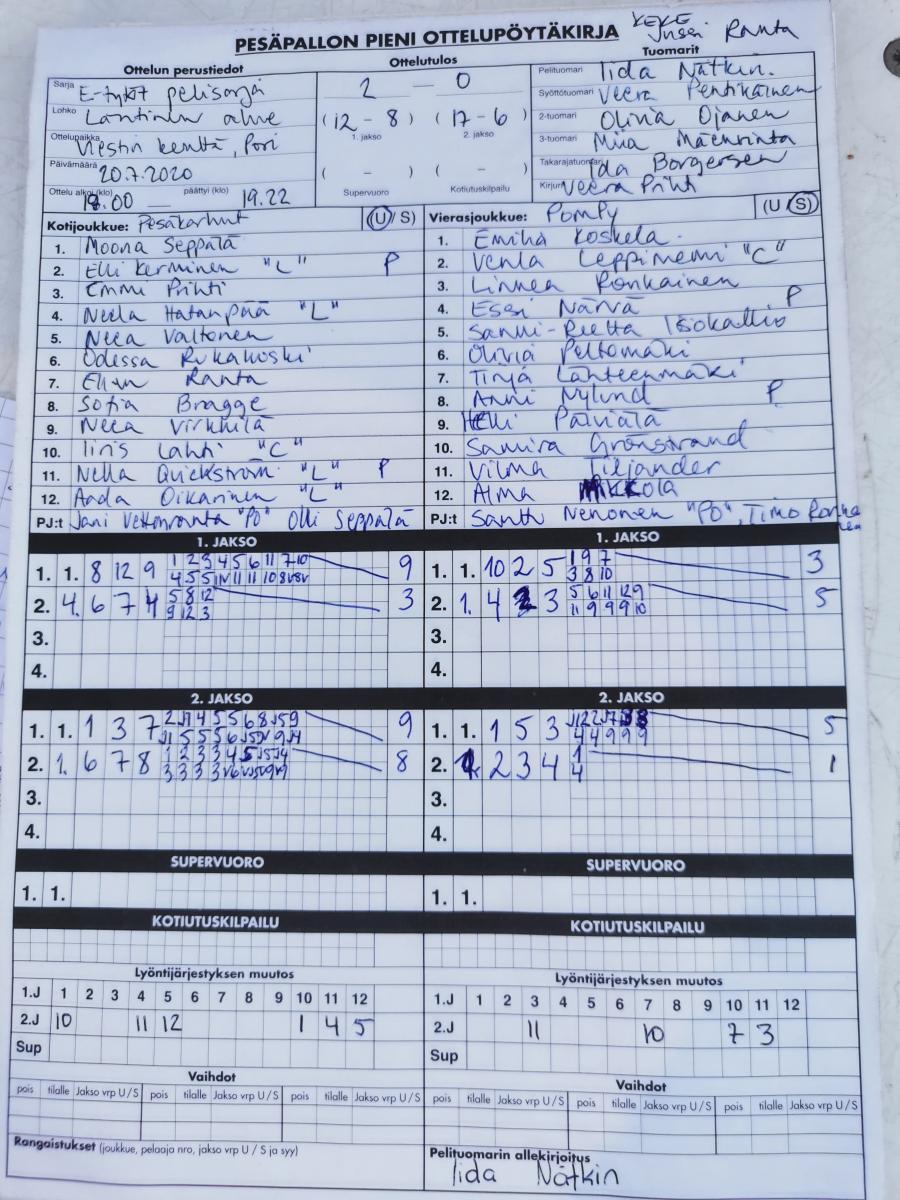 PESÄPALLON PIENI OTTELUPÖYTÄKIRJA
Ranta
Ottelun perustiedot
Ottelutulos
Tuomarit
Sarja E-tytöt pelisarja
2 — 0
Pelituomari Iida Nätkin.
Lohko Läntinen alue
Syöttötuomari Veera Pentikäinen
(12 - 8) (17 - 6)
1. jakso 2. jakso
2-tuomari Olivia Ojanen
Ottelupaikka Viestin kenttä, Pori
3-tuomari Miia Mäenrinta
Päivämäärä 20.7.2020
( - ) ( - )
Takarajatuomari Ida Borgersen
Supervuoro Kotiutuskilpailu
Kirjuri Veera Prihti
Ottelu alkoi (klo) 18.00 — päättyi (klo) 19.22
Kotijoukkue: Pesäkarhut (U / S)
1. Moona Seppälä
2. Elli Kerminen "L" P
3. Emmi Prihti
4. Neela Hatanpää "L"
5. Neea Valtonen
6. Odessa Rukakoski
7. Ellen Ranta
8. Sofia Bragge
9. Neea Virkkilä
10. Iiris Lahti "C"
11. Nella Quickström "L" P
12. Aada Oikarinen "L"
PJ:t Jani Vettenranta "PO" Olli Seppälä
Vierasjoukkue: Pompy (U / S)
1. Emilia Koskela
2. Venla Leppiniemi "C"
3. Linnea Ronkainen
4. Essi Närvä P
5. Sanni-Reetta Isokallio
6. Olivia Peltomäki
7. Tinja Lähteenmäki
8. Anni Nylund P
9. Helli Päiviälä
10. Samira Grönstrand
11. Vilma Tiljander
12. Alma Mikkola
PJ:t Santtu Nenonen "PO", Timo
1. JAKSO
1. 1. 8 12 9 1 2 3 4 5 6 11 7 10 9
2. 4. 6 7 4 5 8 12 3
9 12 3
3.
4.
1. JAKSO
1. 1. 10 2 5 1 9 7 3
3 8 10
2. 1. 4 2 3 5 6 11 12 9 5
11 9 9 9 10
3.
4.
2. JAKSO
1. 1. 1 3 7 9
2. 1. 6 7 8 8
3.
4.
2. JAKSO
1. 1. 1 5 3 5
4 4 9 9 9
2. 2 3 4 1 1
4
3.
4.
SUPERVUORO
1. 1.
SUPERVUORO
1. 1.
KOTIUTUSKILPAILU
KOTIUTUSKILPAILU
Lyöntijärjestyksen muutos
1.J 1 2 3 4 5 6 7 8 9 10 11 12
2.J 10 11 12 1 4 5
Sup
Lyöntijärjestyksen muutos
1.J 1 2 3 4 5 6 7 8 9 10 11 12
2.J 11 10 7 3
Sup
Vaihdot
pois tilalle Jakso vrp U / S pois tilalle Jakso vrp U / S pois tilalle Jakso vrp U / S
Vaihdot
pois tilalle Jakso vrp U / S pois tilalle Jakso vrp U / S pois tilalle Jakso vrp U / S
Rangaistukset (joukkue, pelaaja nro, jakso vrp U / S ja syy)
Pelituomarin allekirjoitus
Iida Nätkin